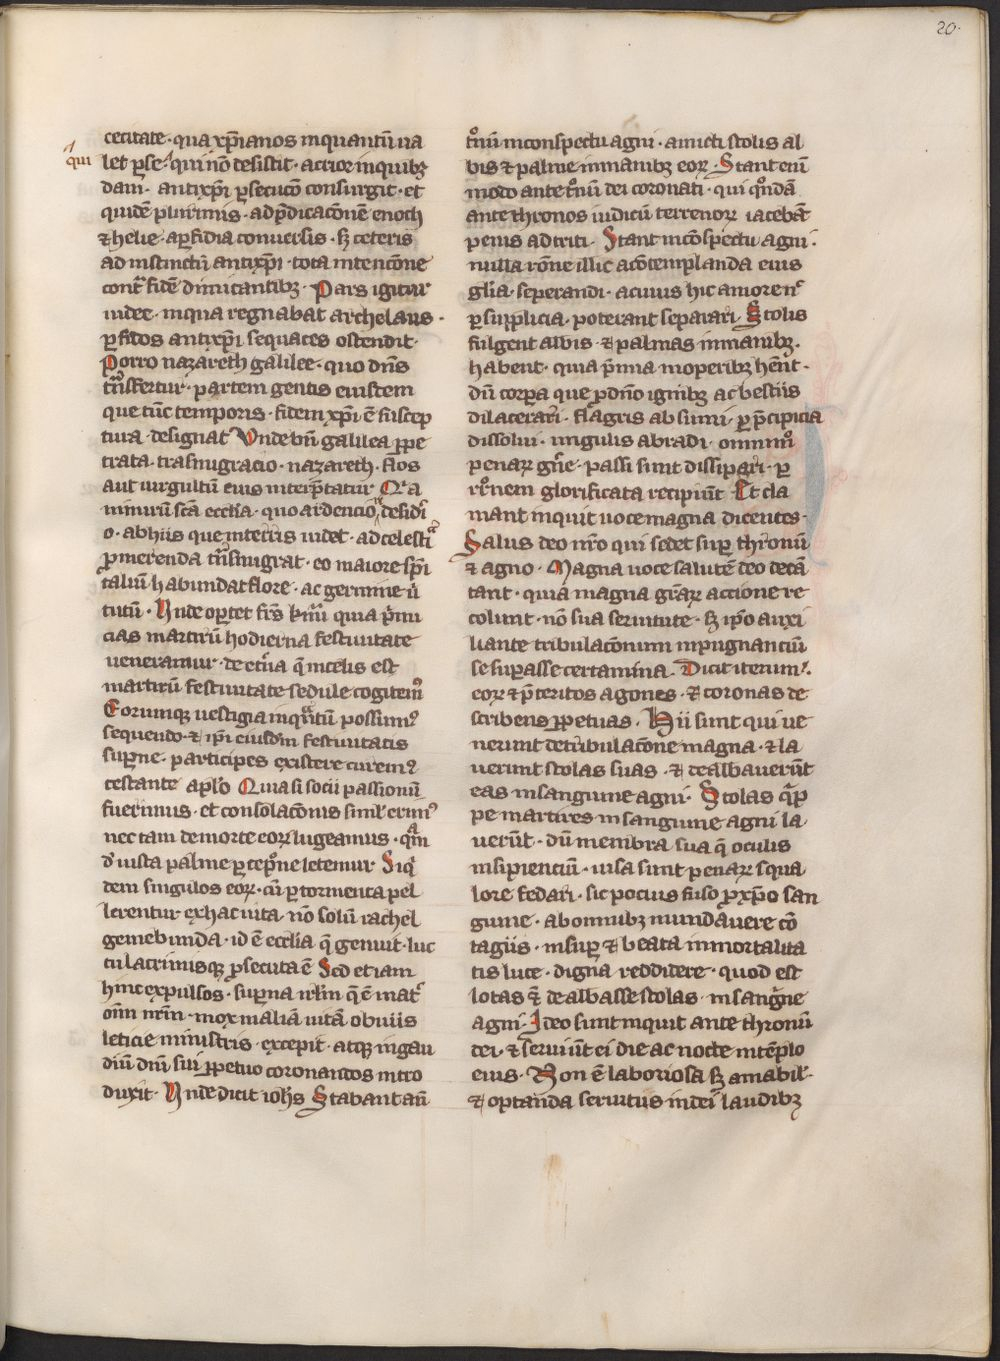 20.
cecitate · qua xp̄ianos inquantū ua
qui
let p̱se · qui nō desistit · acrior inquibꝫ
dam · antixp̄i p̱secucō consurgit · et
quidē plurimis · ad p̄dicacōnē enoch
⁊ helie · a p̱fidia conuersis · sꝫ ceteris
ad instinctū antixp̄i · tota intencōne
contͣ fidē dimicantibꝫ · Pars igitur
iudee · in qua regnabat archelaus ·
p̱fidos antixp̄i sequaces ostendit ·
Porro nazareth galilee · quo dn̄s
tͣnsfertur · partem gentis eiusdem
que tūc temporis · fidem xp̄i ē suscep
tura · designat Vnde bn̄ galilea p̱pe
trata · trasmigracio · nazareth · flos
aut uirgultū eius interp̄tatur Qͥa
nimirū sc̄a eccl̄ia · quo ardencio desid̄i
o · ab hiis que interiꝰ uidet · ad celestiͣ
ꝓmerenda tͣnsmigrat · eo maiore sp̄i
taliū habundat flore · ac germine uͥ
tutū · Vnde oꝑtet frs̄ kͬmī quia pͥmi
cias martirū hodierna festiuitate
ueneramur · de et̄na q̄ in celis est
martirū festiuitate sedule cogitemꝰ
Eorumqꝫ uestigia inqͣntū possimꝰ
sequendo · ⁊ ip̄i eiusdm̄ festiuitatis
sup̱ne · participes existere curemꝰ
testante ap̄lo Quia si socii passionū
fuerimus · et consolacōnis simͥl erimꝰ
nec tam de morte eoꝝ lugeamus · qͣm
d' iusta palme p̱cepōne letemur Siqͥ
dem singulos eoꝝ · cū p̱ tormenta pel
lerentur ex hac uita · nō solū rachel
gemebunda · id ē eccl̄ia q̄ genuit · luc
tu lacrimisqꝫ ꝓsecuta ē Sed etiam
hinc expulsos · sup̱na irl̄m q̄ ē matͬ
om̄ nr̄m · mox in aliā uitā obuiis
leticie ministris · excepit · atqꝫ in gau
diū dn̄i sui p̱petuo coronandos intro
duxit · Vnde dicit ioh̄s Stabant an̄
tͦnū in conspectu agni · amicti stolis al
bis ⁊ palme in manibꝫ eoꝝ · Stant enī
modo ante tͦnū dei coronati · qui qͦndā
ante thronos iudicū terrenoꝝ iacebāt
penis adtriti · Stant in cōspectu agni ·
nulla rōne illic a cōtemplanda eius
gl̄ia · seperandi · a cuius hic amore nͨ
p̱ supplicia · poterant separari · Stolis
fulgent albis · ⁊ palmas in manibꝫ ·
habent · quia p̄mia in operibꝫ hēnt ·
dū corpora que ꝓ dn̄o ignibꝫ ac bestiis
dilacerari · flagris absumi · p̱ p̄cipicia
dissolui · ungulis abradi · omnimͦ
penaꝝ gn̄e · passi sunt dissipari · p̱
rͬnem glorificata recipiūt Et cla
mant inquit uoce magna dicentes ·
Salus deo nr̄o qui sedet sup̱ thronū
⁊ agno · Magna uoce salutē deo decā
tant · quia magna gr̄aꝝ accione re
colunt · nō sua seruitute · sꝫ ip̄o auxi
liante tribulacōnum inpugnanciū
se sup̱asse certamina · Dicit iterum ·
eoꝝ ⁊ p̄teritos agones · ⁊ coronas de
scribens p̱petuas · Hii sunt qui ue
nerunt de tribulacōne magna · ⁊ la
uerunt stolas suas · ⁊ dealbauerūt
eas in sangune agni · Stolas qͥp
pe martires in sangune agni la
uerūt · dū membra sua q̄ oculis
insipienciū · uisa sunt penaꝝ squa
lore fedari · sic pocius fuso ꝓ xp̄o san
gune · ab omnibꝫ mundauere cō
tagiis · insup̱ ⁊ beata inmortalita
tis luce · digna reddidere · quod est
lotas ⁊ dealbasse stolas · in sangͥne
agni · Ideo sunt inquit ante thronū
dei · ⁊ seruiūt ei die ac nocte in tēplo
eius · Non ē laboriosa sꝫ amabil' ·
⁊ optanda seruitus in dei laudibꝫ